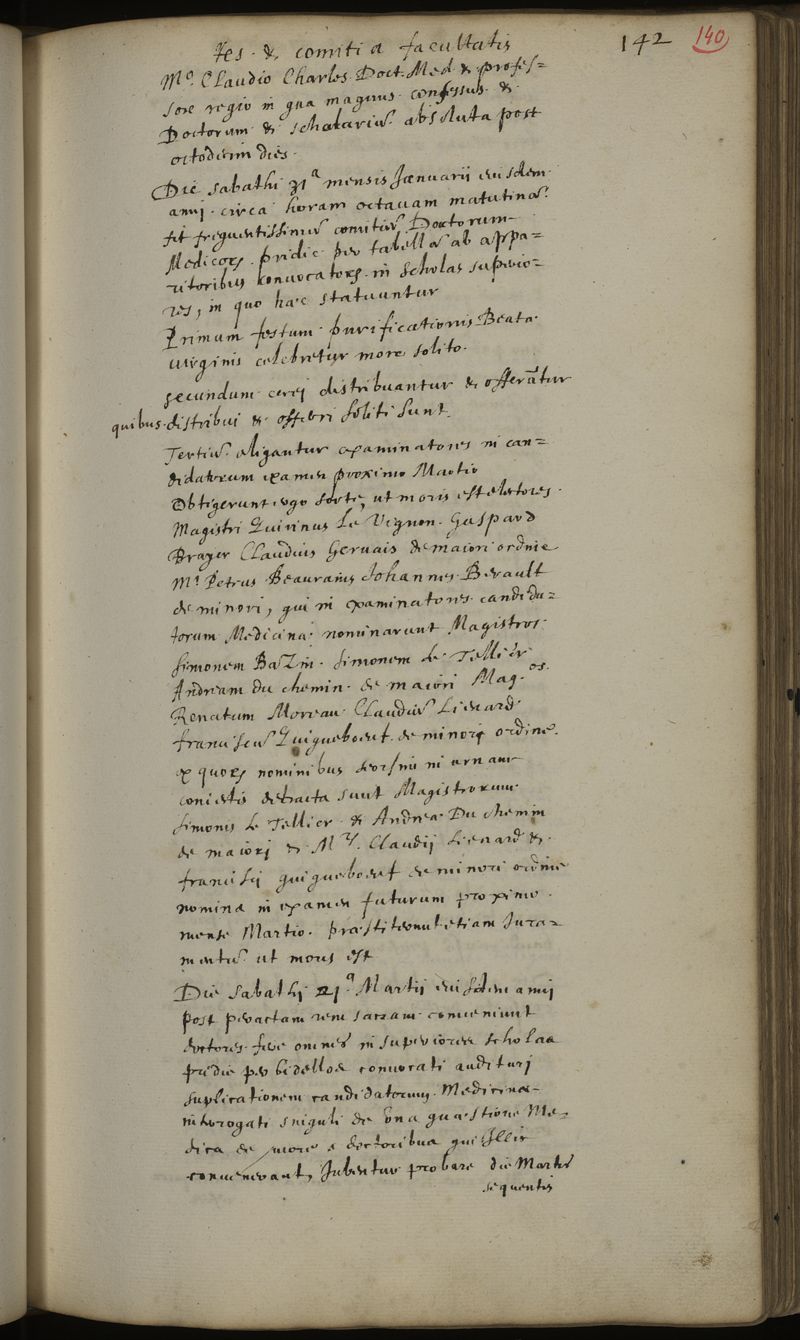 142 140
Res & comitia facultatis
Mº. Claudio Charles Doct. Med & profes=
sore regio in qua magnus consessus &
Doctorum & scholariu͂ absoluta post
octodecim dies.
Die sabathi 31ª mensis Januarii eiusdem
anni circa horam octauam matutina͂
fit frequentissimu͂ comitiu͂ Doctorum
Medicor͂ pridie per tabella͂ ab appa=
ritoribus convocator͂ in scholas superio=
res, in quo hæc statuuntur
Primum festum purificationis Beatæ
virginis celebretur more solito.
secundum cerej distribuantur & offera͂tur
quibus distribui & offerri soliti sunt.
Tertiu͂ eligantur examinatores in can=
didatorum examen proximo Martio
Obtigerunt ergo sorte, ut moris est electores.
Magistri Quirinus Le Vignon. Gaspard
Brayer Claudius Gervais de maiori ordine
Mʳ. Petrus Beaurains Johannes Berault
de minori, qui in examinatores candida=
torum Medicinæ nominarunt Magistros
Simonem Bazin. Simonem Le Tellier
Andream du chemin. de maiori Mag.os.
Renatum Moreau Claudiu͂ Lienard
Franciscu͂ Guigueboeuf de minori ordine.
ex quor͂ nominibus seorsim in urnam
coniectis detracta sunt Magistrorum
Simonis Le Tellier & Andreæ Du chemin
de maiori & M. Claudij Lienard &
francisci guigueboeuf de minori ordine
nomina in examen futurum proximo
mense Martio. præstiteruntetiam Jura=
mentu͂ ut moris est
Die sabathj 21ª Martij eiusdem annj
post peractam rem sacram conveniunt
doctores fere omnes in superiores scholas
pridie per bidellos convocati auditurj
suplicationem candidatorum. Medicinæ
interogati singuli de una quæstione Me=
dica de more a doctoribus qui illic
convenerant, Jubentur probare die Martis
sequentis